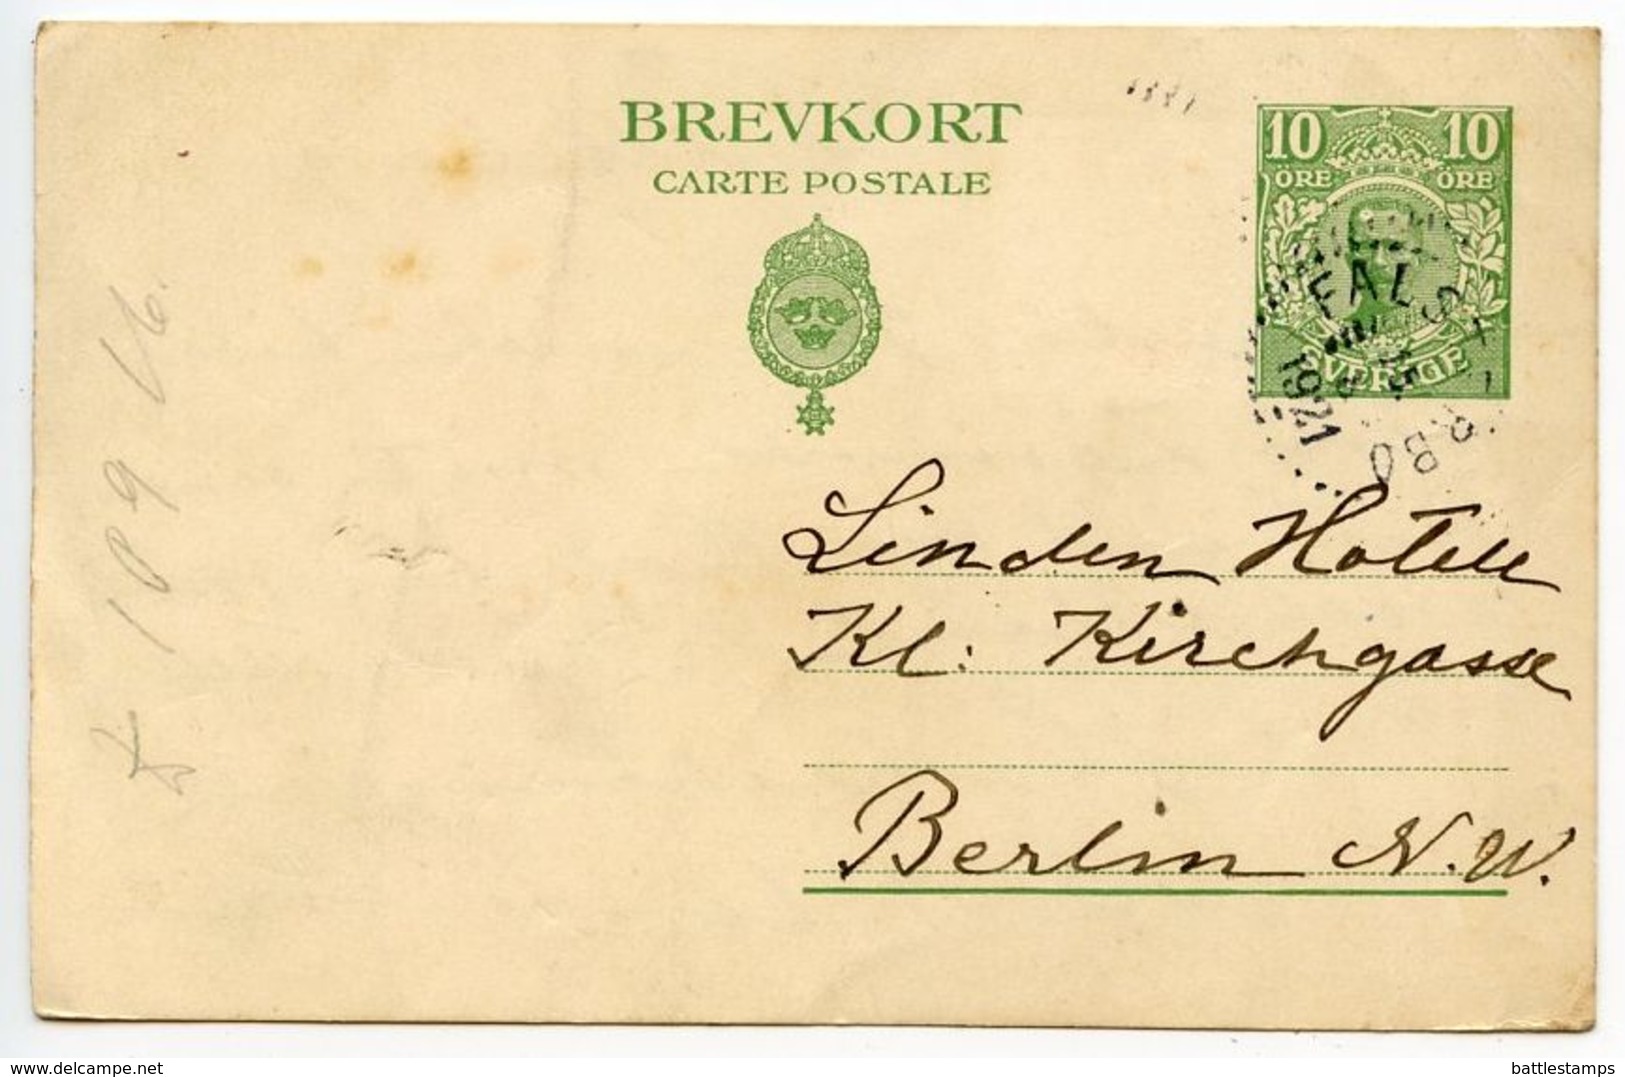 BREVKORT
CARTE POSTALE
10 10
ÖRE ÖRE
SVERIGE
1921
Linden Hotell
Kl. Kirchgasse
Berlin N.W.
109 66.
delcampe.net
battlestamps